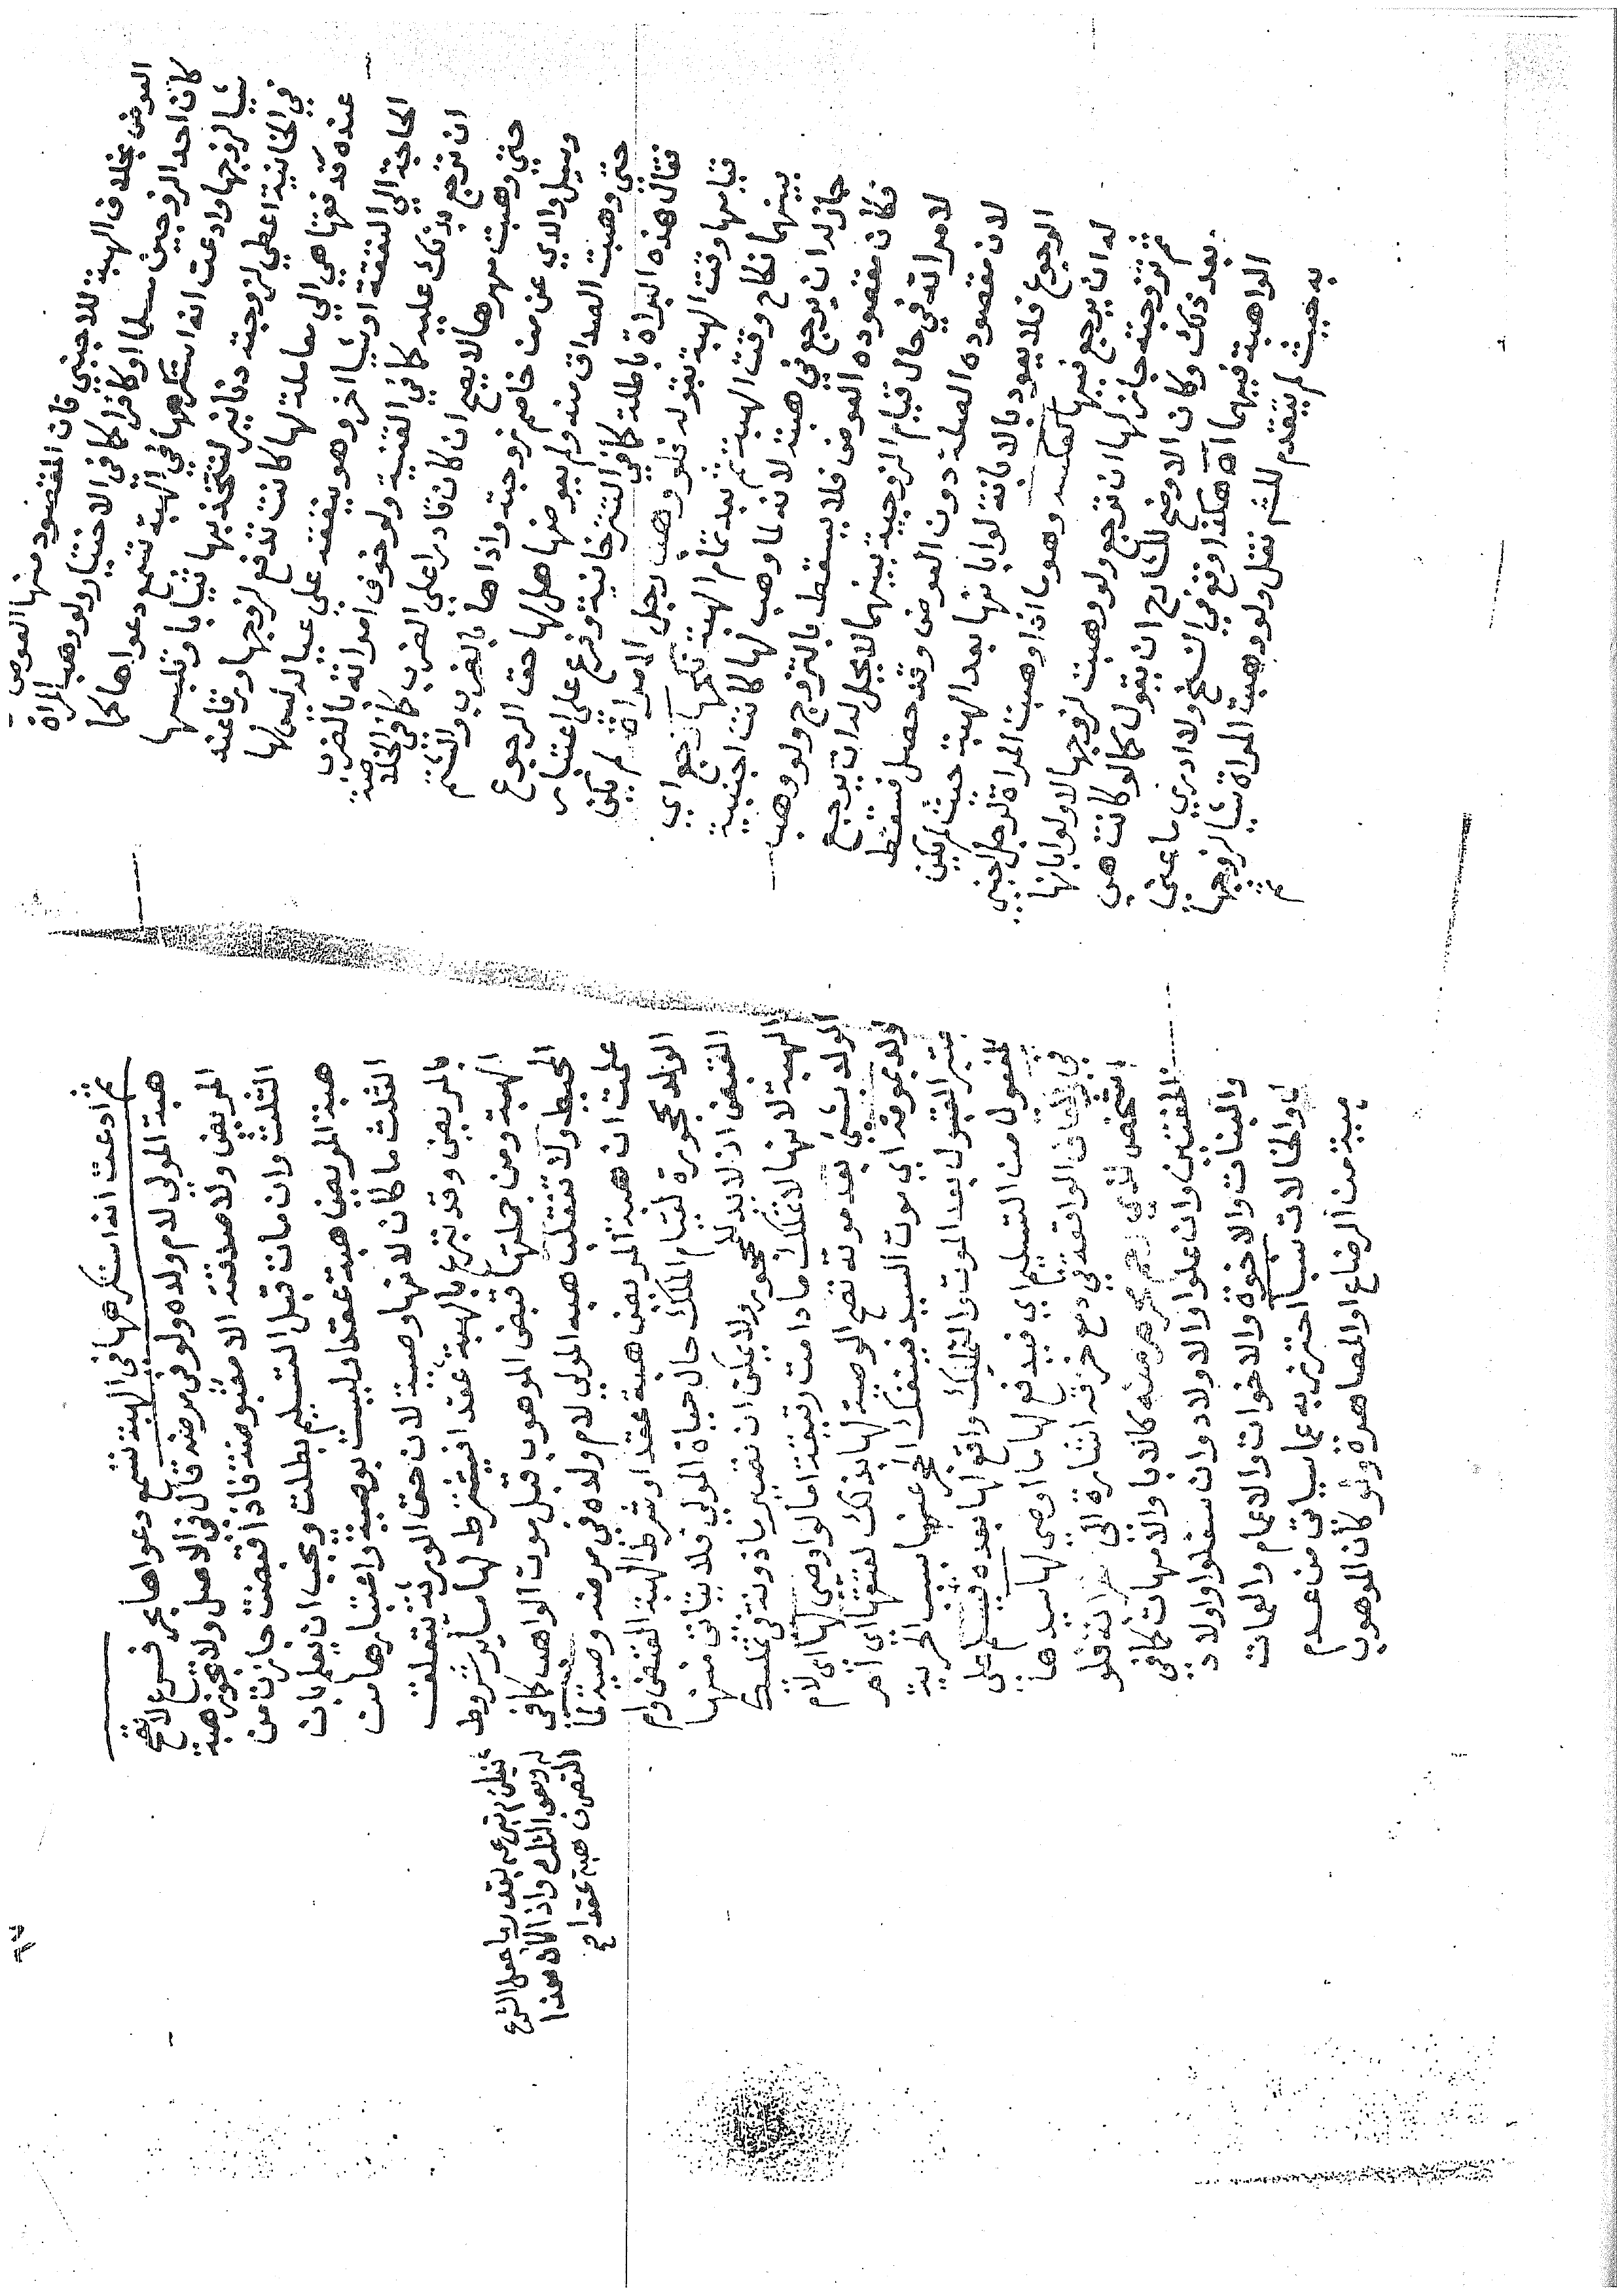 العوض بخلاف الهبة للاجنبي فان المقصود منها العوض
كان احد الزوجين مسلما او كافرا كما في الاختيار ولو وهبت المراة
شيا لزوجها وادعت انه استكرهها في الهبة تسمع دعواها كما
في الخانية اعطي لزوجته دنانير لتتخذ بها ثيابا وتلبسها
عنده فدفعتها هي الي معاملة لها كانت تدفع لزوجها ورقا عند
الحاجة الي النفقة او شيا اخر وهو ينفقه علي عياله ليس لها
ان ترجع بذلك عليه كما في القنية ولو خوف امراته بالضرب
حتي وهبت مهرها لا يصح ان كان قادرا علي الضرب كما في الخلاصة
وسيل والدي عن من خاصم زوجته واذاها بالضرب والشتم
حتي وهبت الصداق منه ولم يعوضها هل لها حق الرجوع
فقال هذه البراة باطلة كما في التترخانية وفرع علي اعتبار
قيامها وقت الهبة بقوله فلو وهب رجل لامراة لم يكن
بينهما نكاح وقت الهبة ثم بعد تمام الهبة نكحها رجع اي
جاز له ان يرجع في هبته لانه لما وهب لها كانت اجنبية
فكان مقصوده العوض فلا يسقط بالتزوج ولو وهب
لامراته في حال قيام الزوجية بينهما لا يحل له ان يرجع
لان مقصوده الصلة دون العوض وقد حصل فسقط
الرجوع فلا يعود بالابانة لو ابانها بعد الهبة حيث لم يكن
له ان يرجع فيها كعكسه وهو ما اذا وهبت المراة لرجل اجنبي
ثم تزوجته جاز لها ان ترجع ولو وهبت لزوجها لا ولو ابانها
بعد ذلك وكان الاوضح للشارح ان يقول كما لو كانت هي
الواهبة فيهما اه هكذا وقع في النسخ ولا ادري ما عني
به حيث لم يتقدم للشم نقل ولو وهبت المراة شيا لزوجها
ثم ادعت انه استكرهها في الهبة تسمع دعواها بحر فرع لا تصح
هبة المولي لام ولده ولو في مرضه قال في الاصل ولا تجوز هبة
المريض ولا صدقته الا مقبوضة فاذا قبضت جازت من
الثلث وان مات قبل التسليم بطلت ويجب ان يعلم بان
هبة المريض هبة عقدا وليست بوصية واعتبارها من
الثلث ما كان لانها وصية لان حق الورثة تتعلق
بالمريض وقد تبرع بالهبة عقدا فيشترط لها ساير شروط
الهبة ومن جملتها قبض الموهوب قبل موت الواهب كما في
المحيط ولا تنقلب هبه المولي لام ولده في مرضه وصية لما
علمت ان هبة المريض هبة عقدا وشرط الهبة القبض وام
الولد محجورة لقيام الملك حال حياة المولي فلا يتاتي منها
القبض اذ لا يد للمحجور ولا يمكن ان تصير ماذونة في تملك
الهبة لانها لا تملك ما دامت رقيقة اما لو اوصي لها اي لام
الولد بشي بعد موته تصح الوصية لها بذلك لعتقها اي ام
ولد بموته اي موت السيد فينفك الحجر عنها بسبب الحرية
يعتبر القبول بعد الموت والتمليك واقع لها بعده فيسلم علي
المفعول من التسليم اي فيدفع لها ما اوصي لها سيدها
المفتين وان علوا والاولاد وان سفلوا واولاد
والبنات والاخوة والاخوات والاعمام والعمات
والخالات نسبا احترز به عما سياتي من عدم
مبيته من الرضاع او المصاهرة ولو كان الموهوب
التصرف هبة عقدا صح